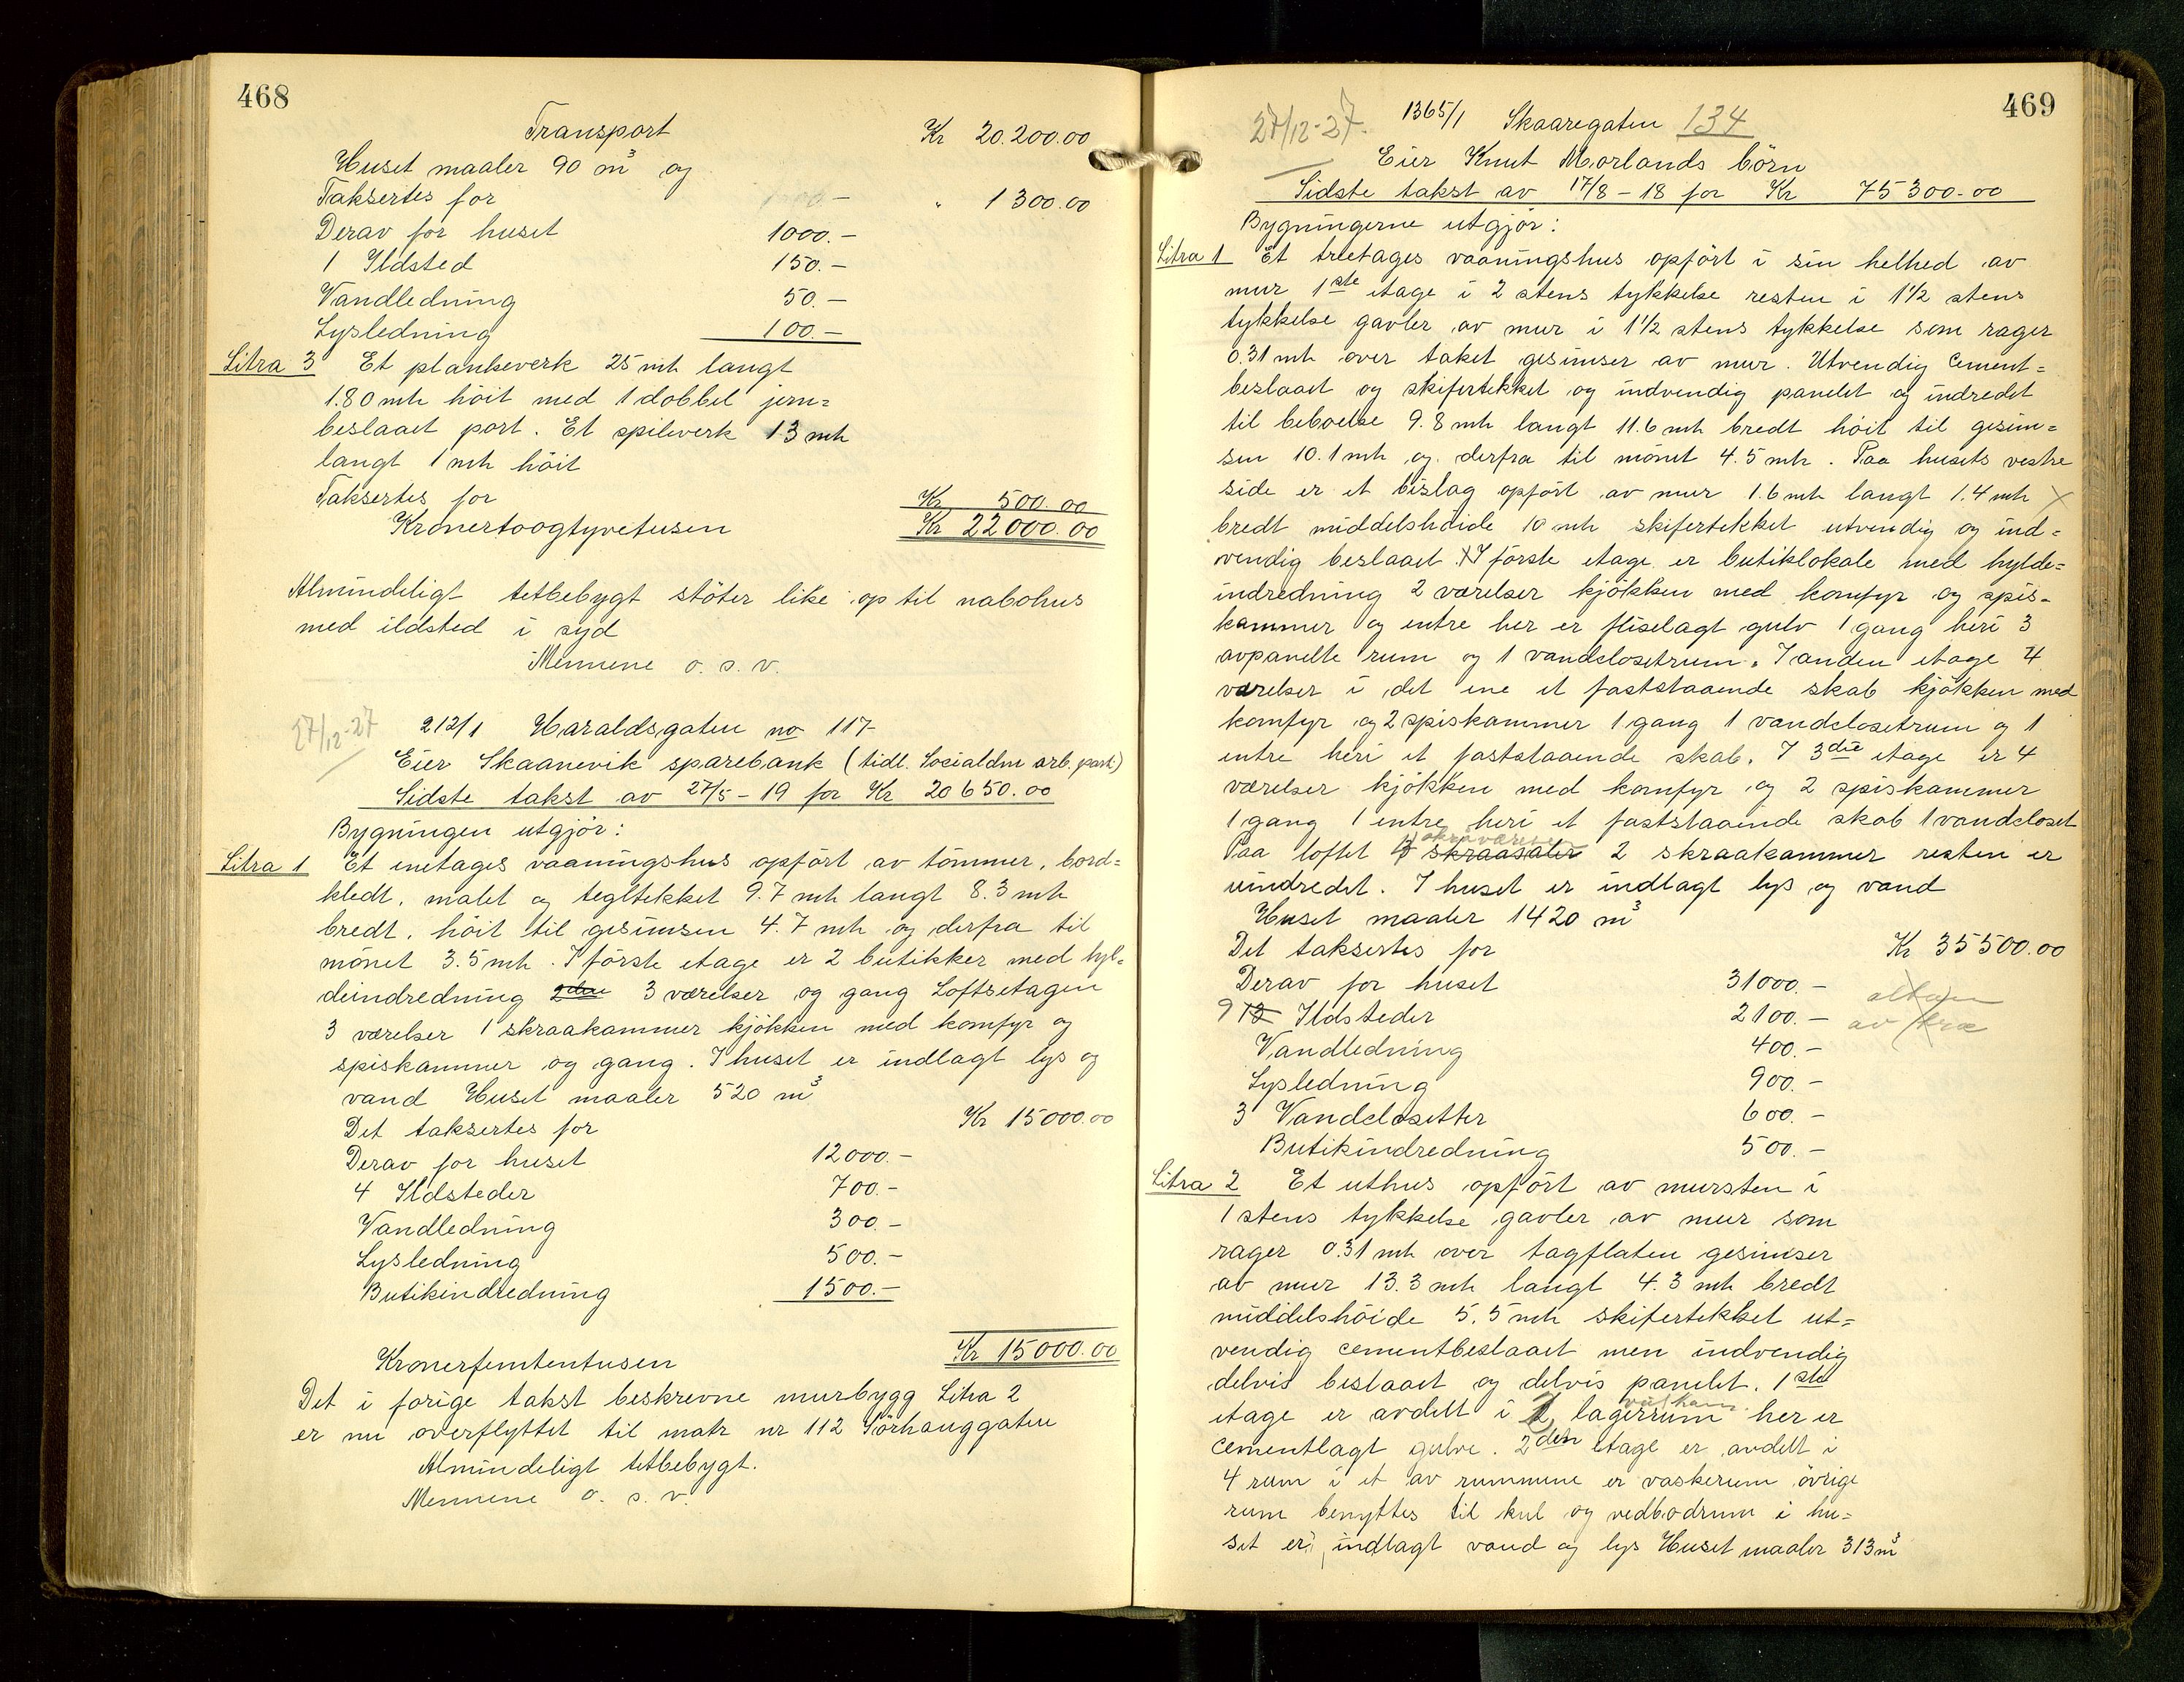 468
Transport Kr 20.200.00
Huset maaler 90 m³ og
Taksertes for " 1300.00
Derav for huset 1000.-
1 Ildsted 150.-
Vandledning 50.-
Lysledning 100.-
Litra 3 Et plankeverk 25 mtr langt
1.80 mtr höit med 1 dobbel jern=
beslaaet port. Et spileverk 13 mtr
langt 1 mtr höit
Taksertes for Kr 500.00
Kronertoogtyvetusen Kr 22000.00
Almindeligt tetbebygt stöter like op til nabohus
med ildsted i syd
Mennene o. s. v.
27/12-27 212/1 Haraldsgaten no 117
Eier Skaanevik sparebank (tidl. Socialdm arb. parti)
Sidste takst av 27/5-19 for Kr 20650.00
Bygningen utgjör:
Litra 1 Et enetages vaaningshus opfört av tömmer, bord=
kledt, malet og tegltekket 9.7 mtr langt 8.3 mtr
bredt, höit til gesimsen 4.7 mtr og derfra til
mönet 3.5 mtr. I förste etage er 2 butikker med hyl=
deindredning 3 værelser og gang Loftsetagen
3 værelser 1 skraakammer kjökken med komfyr og
spiskammer og gang. I huset er indlagt lys og
vand Huset maaler 520 m³
Det taksertes for Kr 15000.00
Derav for huset 12000.-
4 Ildsteder 700.-
Vandledning 300.-
Lysledning 500.-
Butikindredning 1500.-
Kronerfemtentusen Kr 15000.00
Det i forige takst beskrevne murbygg Litra 2
er nu overflyttet til matr nr 112 Sörhauggaten
Almindeligt tetbebygt.
Mennene o. s. v.
469
27/12-27. 1365/1 Skaaregaten 134
Eier Knut Morlands börn
Sidste takst av 17/8-18 for Kr 75300.00
Bygningerne utgjör:
Litra 1 Et treetages vaaningshus opfört i sin helhed av
mur 1ste etage i 2 stens tykkelse resten i 1½ stens
tykkelse gavler av mur i 1½ stens tykkelse som rager
0.31 mtr over taket gesimser av mur. Utvendig Cement=
beslaaet og skifertekket og indvendig panelet og indredet
til beboelse 9.8 mtr langt 11.6 mtr bredt höit til gesim=
sen 10.1 mtr og derfra til mönet 4.5 mtr. Paa husets vestre
side er et bislag opfört av mur 1.6 mtr langt 1.4 mtr X
bredt middelshöide 10 mtr skifertekket utvendig og ind=
vendig beslaaet. X I förste etage er butiklokale med hylde=
indredning 2 værelser kjökken med komfyr og spis-
kammer og entre her er fliselagt gulv 1 gang heri 3
avpanelte rum og 1 vandclosetrum. I anden etage 4
værelser i det ene et faststaaende skab kjökken med
komfyr og 2 spiskammer 1 gang 1 vandclosetrum og 1
entre heri et faststaaende skab. I 3die etage er 4
værelser kjökken med komfyr og 2 spiskammer
1 gang 1 entre heri et faststaaende skab 1 vandcloset
Paa loftet skraasaler 2 skraakammer resten er
uindredet. I huset er indlagt lys og vand
Huset maaler 1420 m³
Det taksertes for Kr 35500.00
Derav for huset 31000.-
9 12 Ildsteder 2100.-
Vandledning 400.-
Lysledning 900.-
3 Vandclosetter 600.-
Butikindredning 500.-
Litra 2 Et uthus opfört av mursten i
1 stens tykkelse gavler av mur som
rager 0.31 mtr over tagflaten gesimser
av mur 13.3 mtr langt 4.3 mtr bredt
middelshöide 5.5 mtr skifertekket ut=
vendig cementbeslaaet men indvendig
delvis beslaaet og delvis panelet. 1ste
etage er avdelt i lagerrum her er
cementlagt gulve. 2den etage er avdelt i
4 rum i et av rummene er vaskerum övrige
rum benyttes til kul og vedbodrum i hu=
set er indlagt vand og lys Huset maaler 313 m³